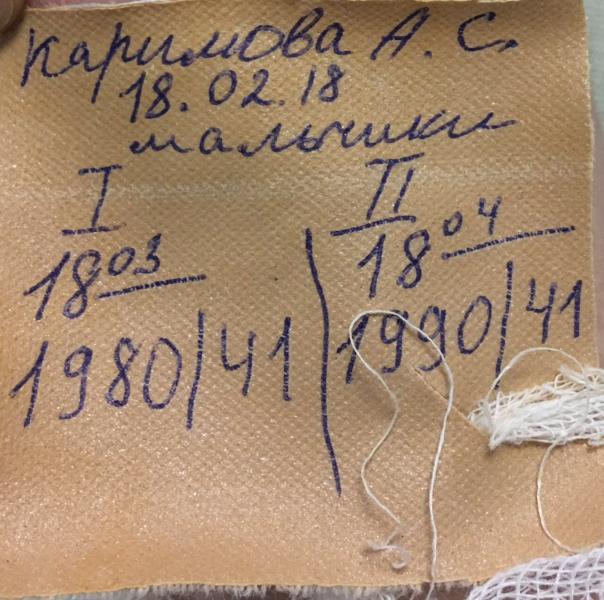 Каримова А. С.
18.02.18
мальчики
I
18 03
1980/41
II
18 04
1990/41